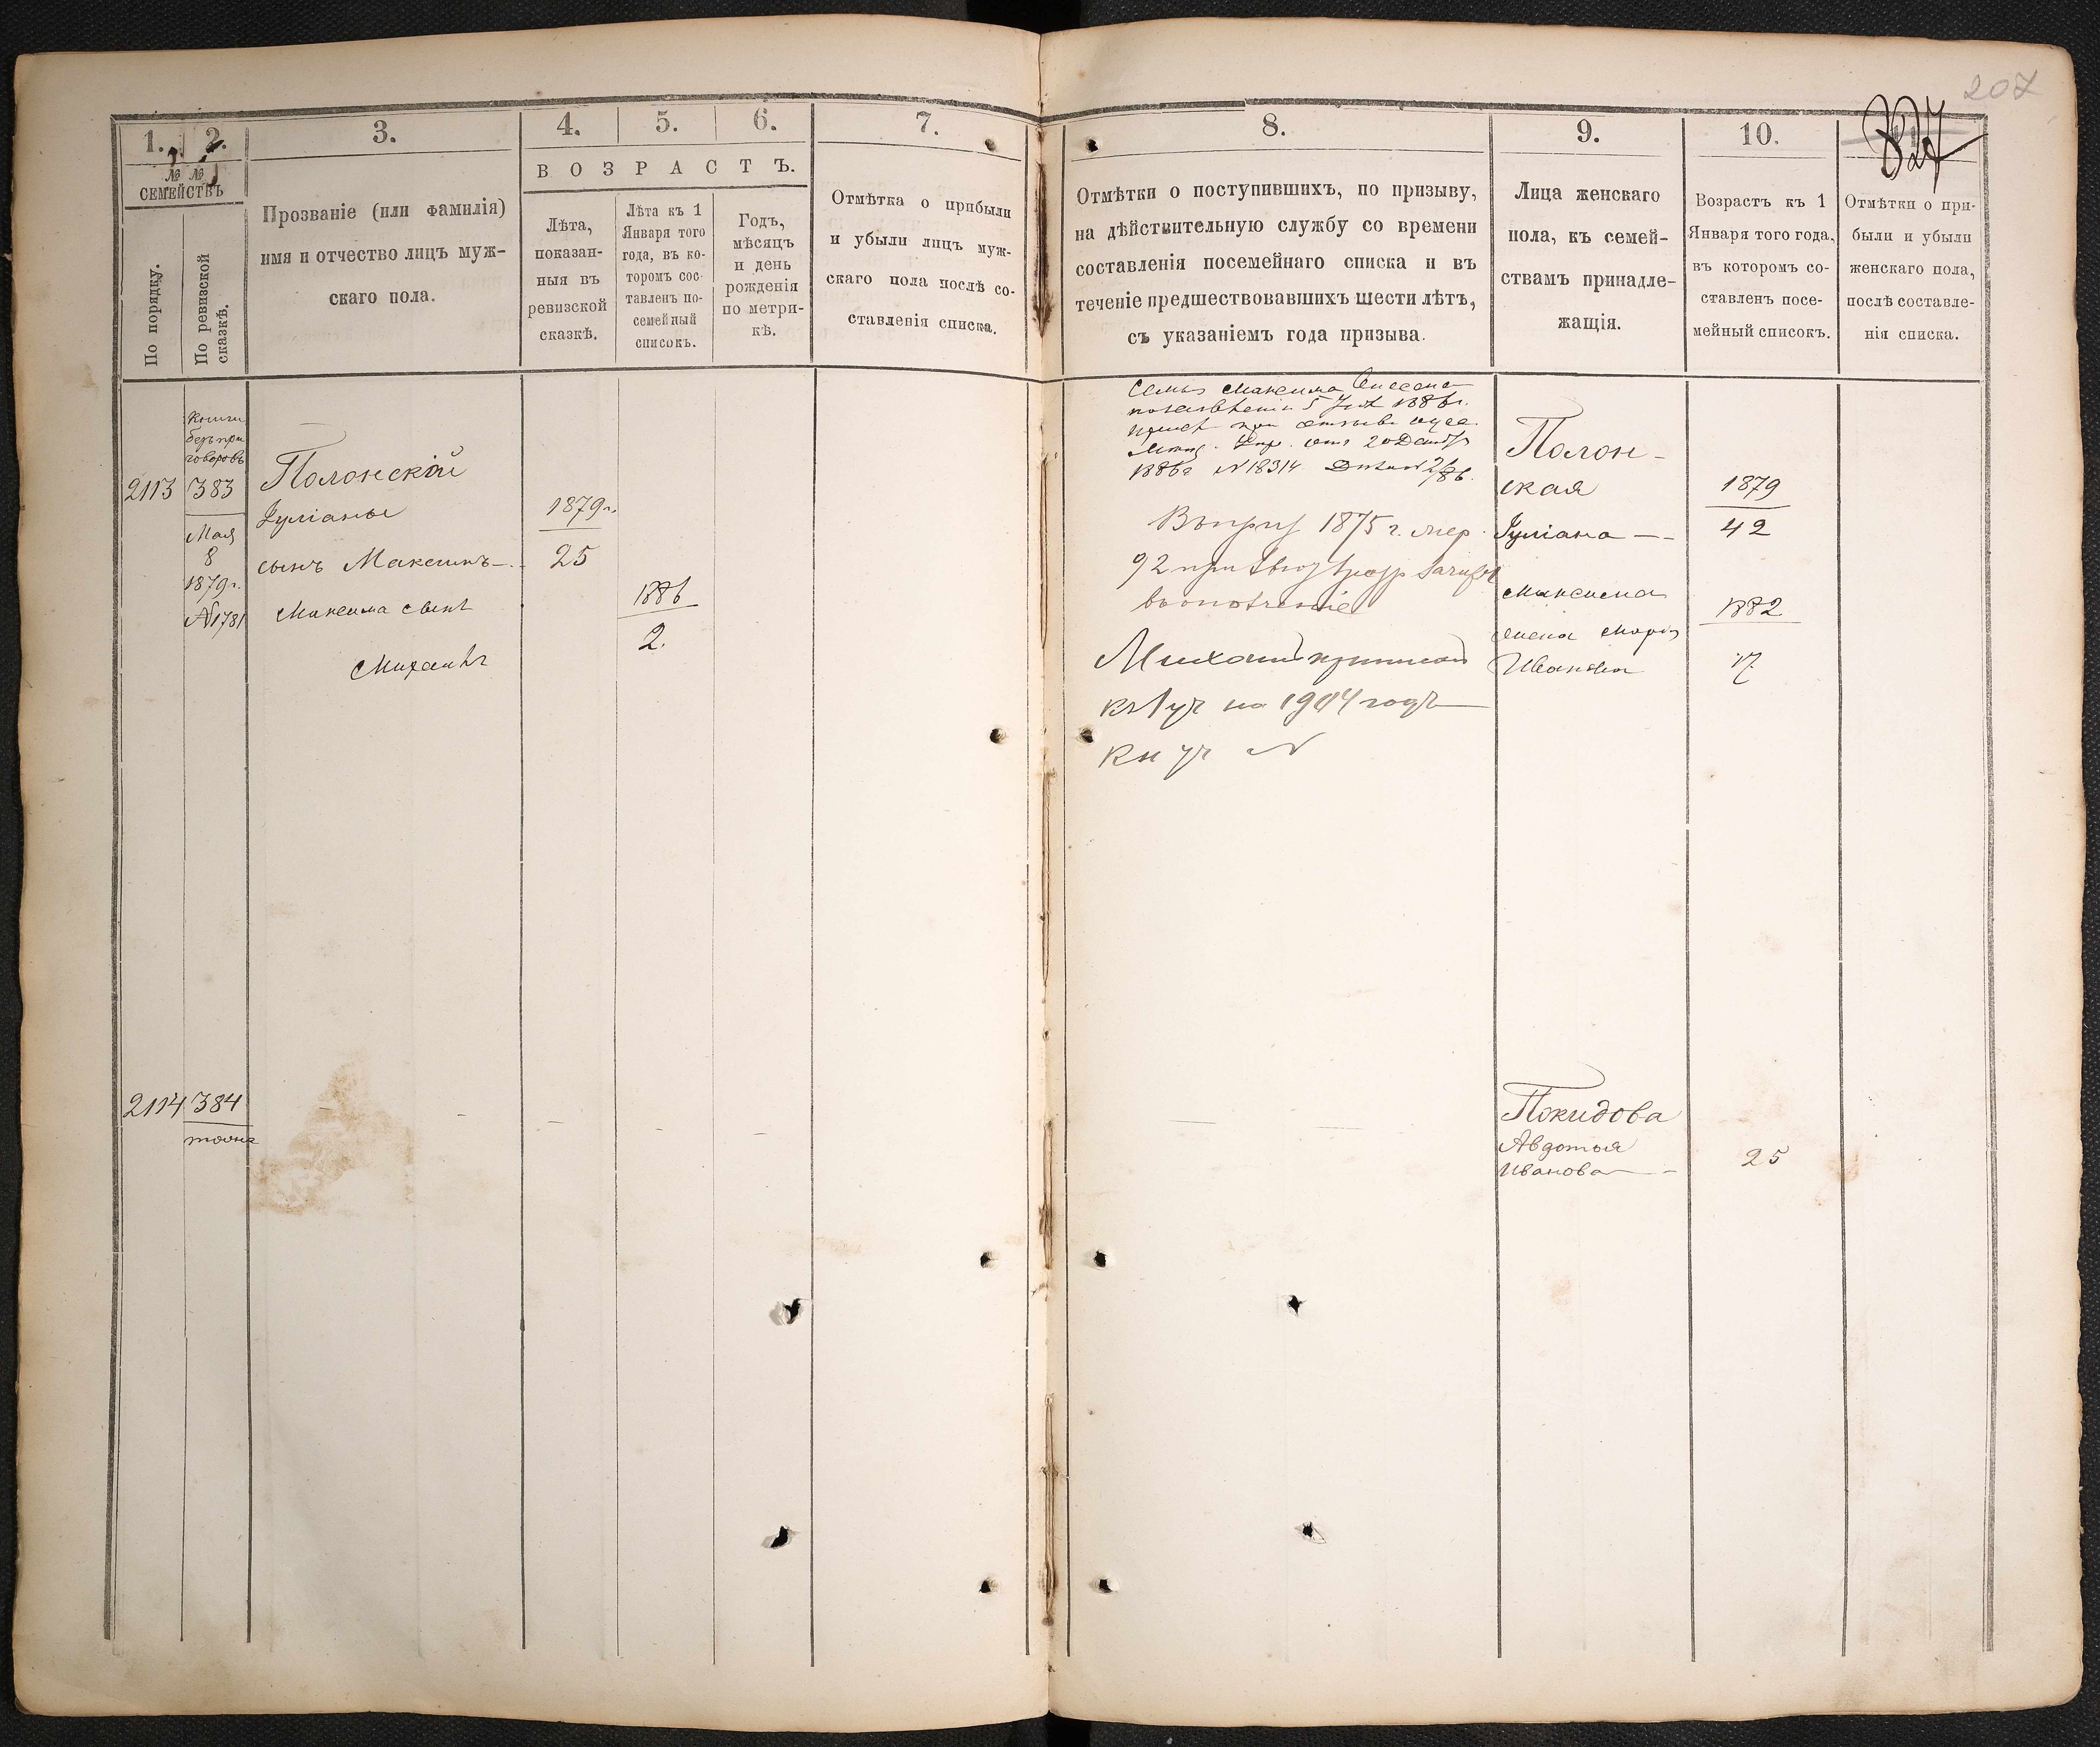 207
827
1.
2.
3.
4.
5.
6.
7.
№ №
СЕМЕЙСТВЪ
По порядку.
По ревизской
сказкѣ.
Прозваніе (или фамилія)
имя и отчество лицъ муж-
скаго пола.
ВОЗРАСТЪ.
Лѣта,
показан-
ныя въ
ревизской
сказкѣ.
Лѣта къ 1
Января того
года, въ ко-
торомъ сос-
тавленъ по-
семейный
списокъ.
Годъ,
мѣсяцъ
и день
рожденія
по метри-
кѣ.
Отмѣтка о прибыли
и убыли лицъ муж-
скаго пола послѣ со-
ставленія списка.
8.
9.
10.
Отмѣтки о поступившихъ, по призыву,
на дѣйствительную службу со времени
составленія посемейнаго списка и въ
теченіе предшествовавшихъ шести лѣтъ,
съ указаніемъ года призыва.
Лица женскаго
пола, къ семей-
ствамъ принадле-
жащія.
Возрастъ къ 1
Января того года,
въ которомъ со-
ставленъ посе-
мейный списокъ.
Отмѣтки о при-
были и убыли
женскаго пола,
послѣ составле-
нія списка.
2113
Книги
безъ при
говоровъ
383
Мая
8
1879г.
№1781
Полонскій
Іуліаны
сынъ Максимъ
Максима сынъ
Михаилъ
1879г.
25
1886
2.
Семья Максима
5 1886г.
20
1886г №18314
1875 г.
92 при
Михаилъ
на 1904 годъ
Кн уч №
Полон-
ская
Іуліана
Максима
жена Марія
Иванова
1879
42
1882
17
2114
384
тоже
Покидова
Авдотья
Иванова
25